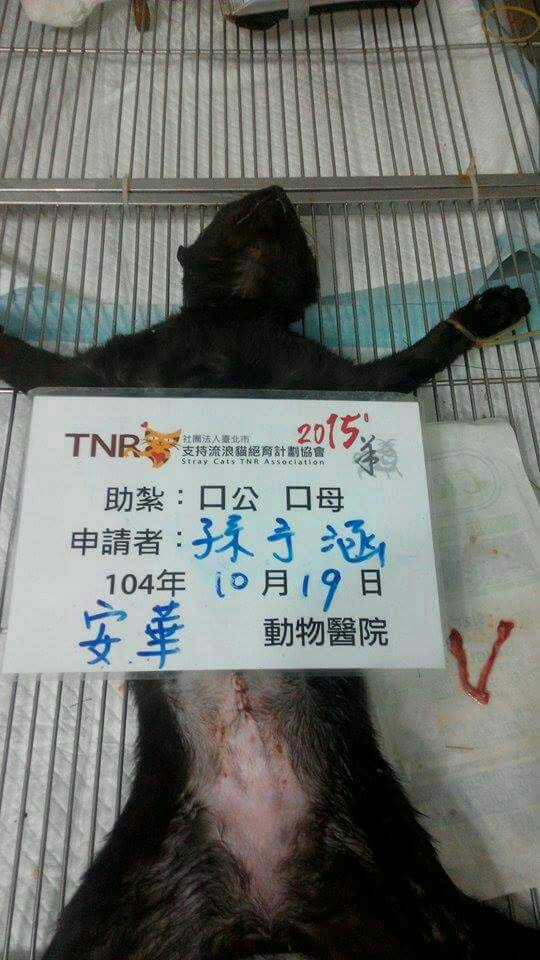 TNR 社團法人臺北市
支持流浪貓絕育計劃協會
Stray Cats TNR Association
2015 羊
助紮：口公 口母
申請者：孫于涵
104年 10月 19日
安華 動物醫院